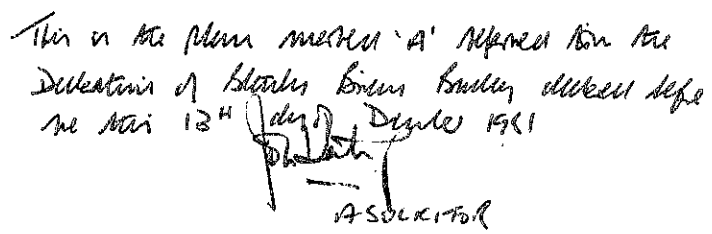 This is the plan marked 'A' referred to in the
Declaration of Brian declared before
me this 13TH day of December 1981
A SOLICITOR